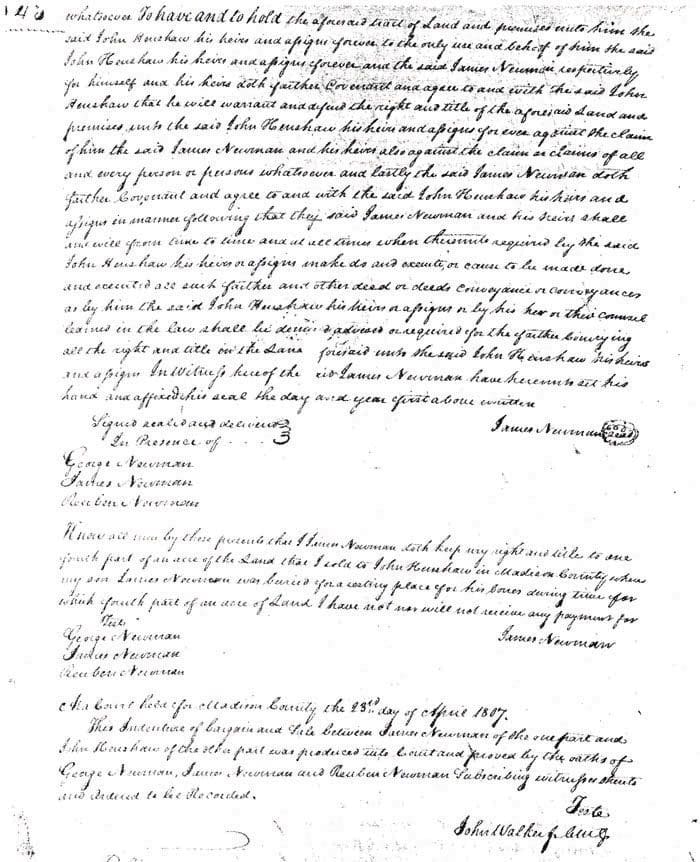 whatsoever To have and to hold the aforesaid tract of Land and premises unto him the
said John Henshaw his heirs and assigns forever to the only use and behoof of him the said
John Henshaw his heirs and assigns forever and the said James Newman respectively
for himself and his heirs doth farther Covenant and agree to and with the said John
Henshaw that he will warrant and defend the right and title of the aforesaid Land and
premises unto the said John Henshaw his heirs and assigns for ever against the claim
of him the said James Newman and his heirs also against the claim or claims of all
and every person or persons whatsoever and lastly the said James Newman doth
farther Covenant and agree to and with the said John Henshaw his heirs and
assigns in manner following that they said James Newman and his heirs shall
and will from time to time and at all times when thereunto required by the said
John Henshaw his heirs or assigns make do and execute, or cause to be made done
and executed all such farther and other deed or deeds conveyance or conveyances
as by him the said John Henshaw his heirs or assigns or by his her or their counsel
learned in the law shall be advised or required for the farther Conveying
all the right and title on the Land foresaid unto the said John Henshaw his heirs
and assigns In Witness hereof the James Newman have hereunto set his
hand and affixed his seal the day and year first above written
Signed sealed and delivered
In Presence of . . . .
James Newman seal
George Newman
James Newman
Reuben Newman
Know all men by these presents that I James Newman doth keep my right and title to one
fourth part of an acre of the Land that I sold to John Henshaw in Madison County where
my son James Newman was buried for a resting place for his bones during time for
which fourth part of an acre of Land I have not nor will not receive any payment for
Teste
James Newman
George Newman
James Newman
Reuben Newman
At a Court held for Madison County the 23rd day of April 1807.
This Indenture of bargain and Sale between James Newman of the one part and
John Henshaw of the other part was produced into Court and proved by the oaths of
George Newman, James Newman and Reuben Newman Subscribing witnesses thereto
and ordered to be Recorded.
Teste
John Walker